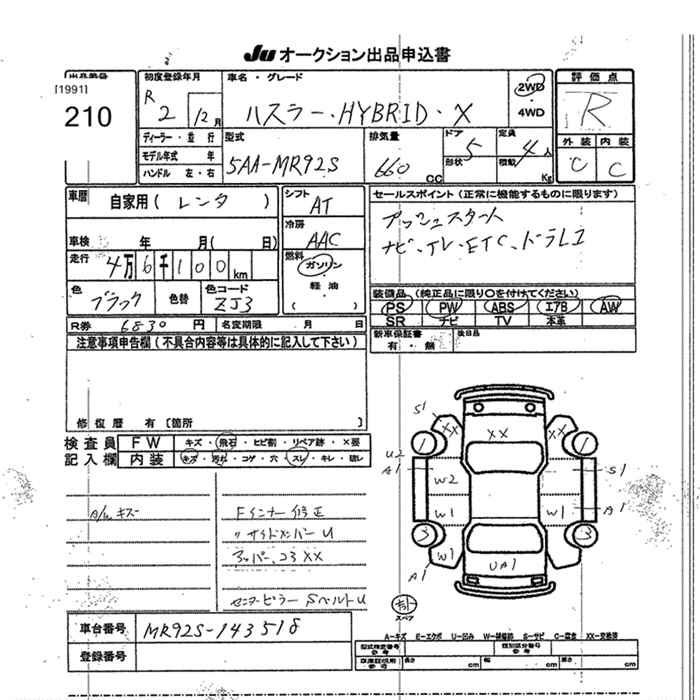 JU オークション出品申込書
出品番号
[1991]
210
初度登録年月
R 2 12月
車名・グレード
ハスラー・HYBRID・X
2WD
・
4WD
評価点
R
外装 内装
C C
ディーラー・並行
モデル年式 年
ハンドル 左・右
型式
5AA-MR92S
排気量
660 CC
ドア 5
形状
定員 4人
積載 Kg
車歴
自家用(レンタ)
車検 年 月( 日)
走行
4万6千100km
色
ブラック
色替
色コード
ZJ3
シフト
AT
冷房
AAC
燃料
ガソリン
・
軽油
( )
セールスポイント(正常に機能するものに限ります)
プッシュスタート
ナビ、TV・ETC、ドラレコ
装備品(純正品に限り○を付けてください)
PS PW ABS エアB AW
SR ナビ TV 本革
R券 6830円 名変期限 月 日
新車保証書
有・無
後日品
注意事項申告欄(不具合内容等は具体的に記入して下さい)
修復歴 有[箇所 ]
検査員
記入欄
FW キズ・飛石・ヒビ割・リペア跡・×要
内装 キズ・汚れ・コゲ・穴・スレ・キレ・破レ
A/W キズ
Fインナー修正
〃サイドメンバーU
アッパー、コミXX
センターピラー SベルトU
S1
XX
XX
1
1
U2
A1
W2
S1
W1
W1
A1
3
3
W1
W1
A1
UA1
スペア
車台番号 MR92S-143518
登録番号
A=キズ E=エクボ U=凹み W=補修跡 S=サビ C=腐食 XX=交換済
型式指定番号
参考
類別区分番号
参考
車庫証明用
参考
長さ cm 幅 cm 高さ cm